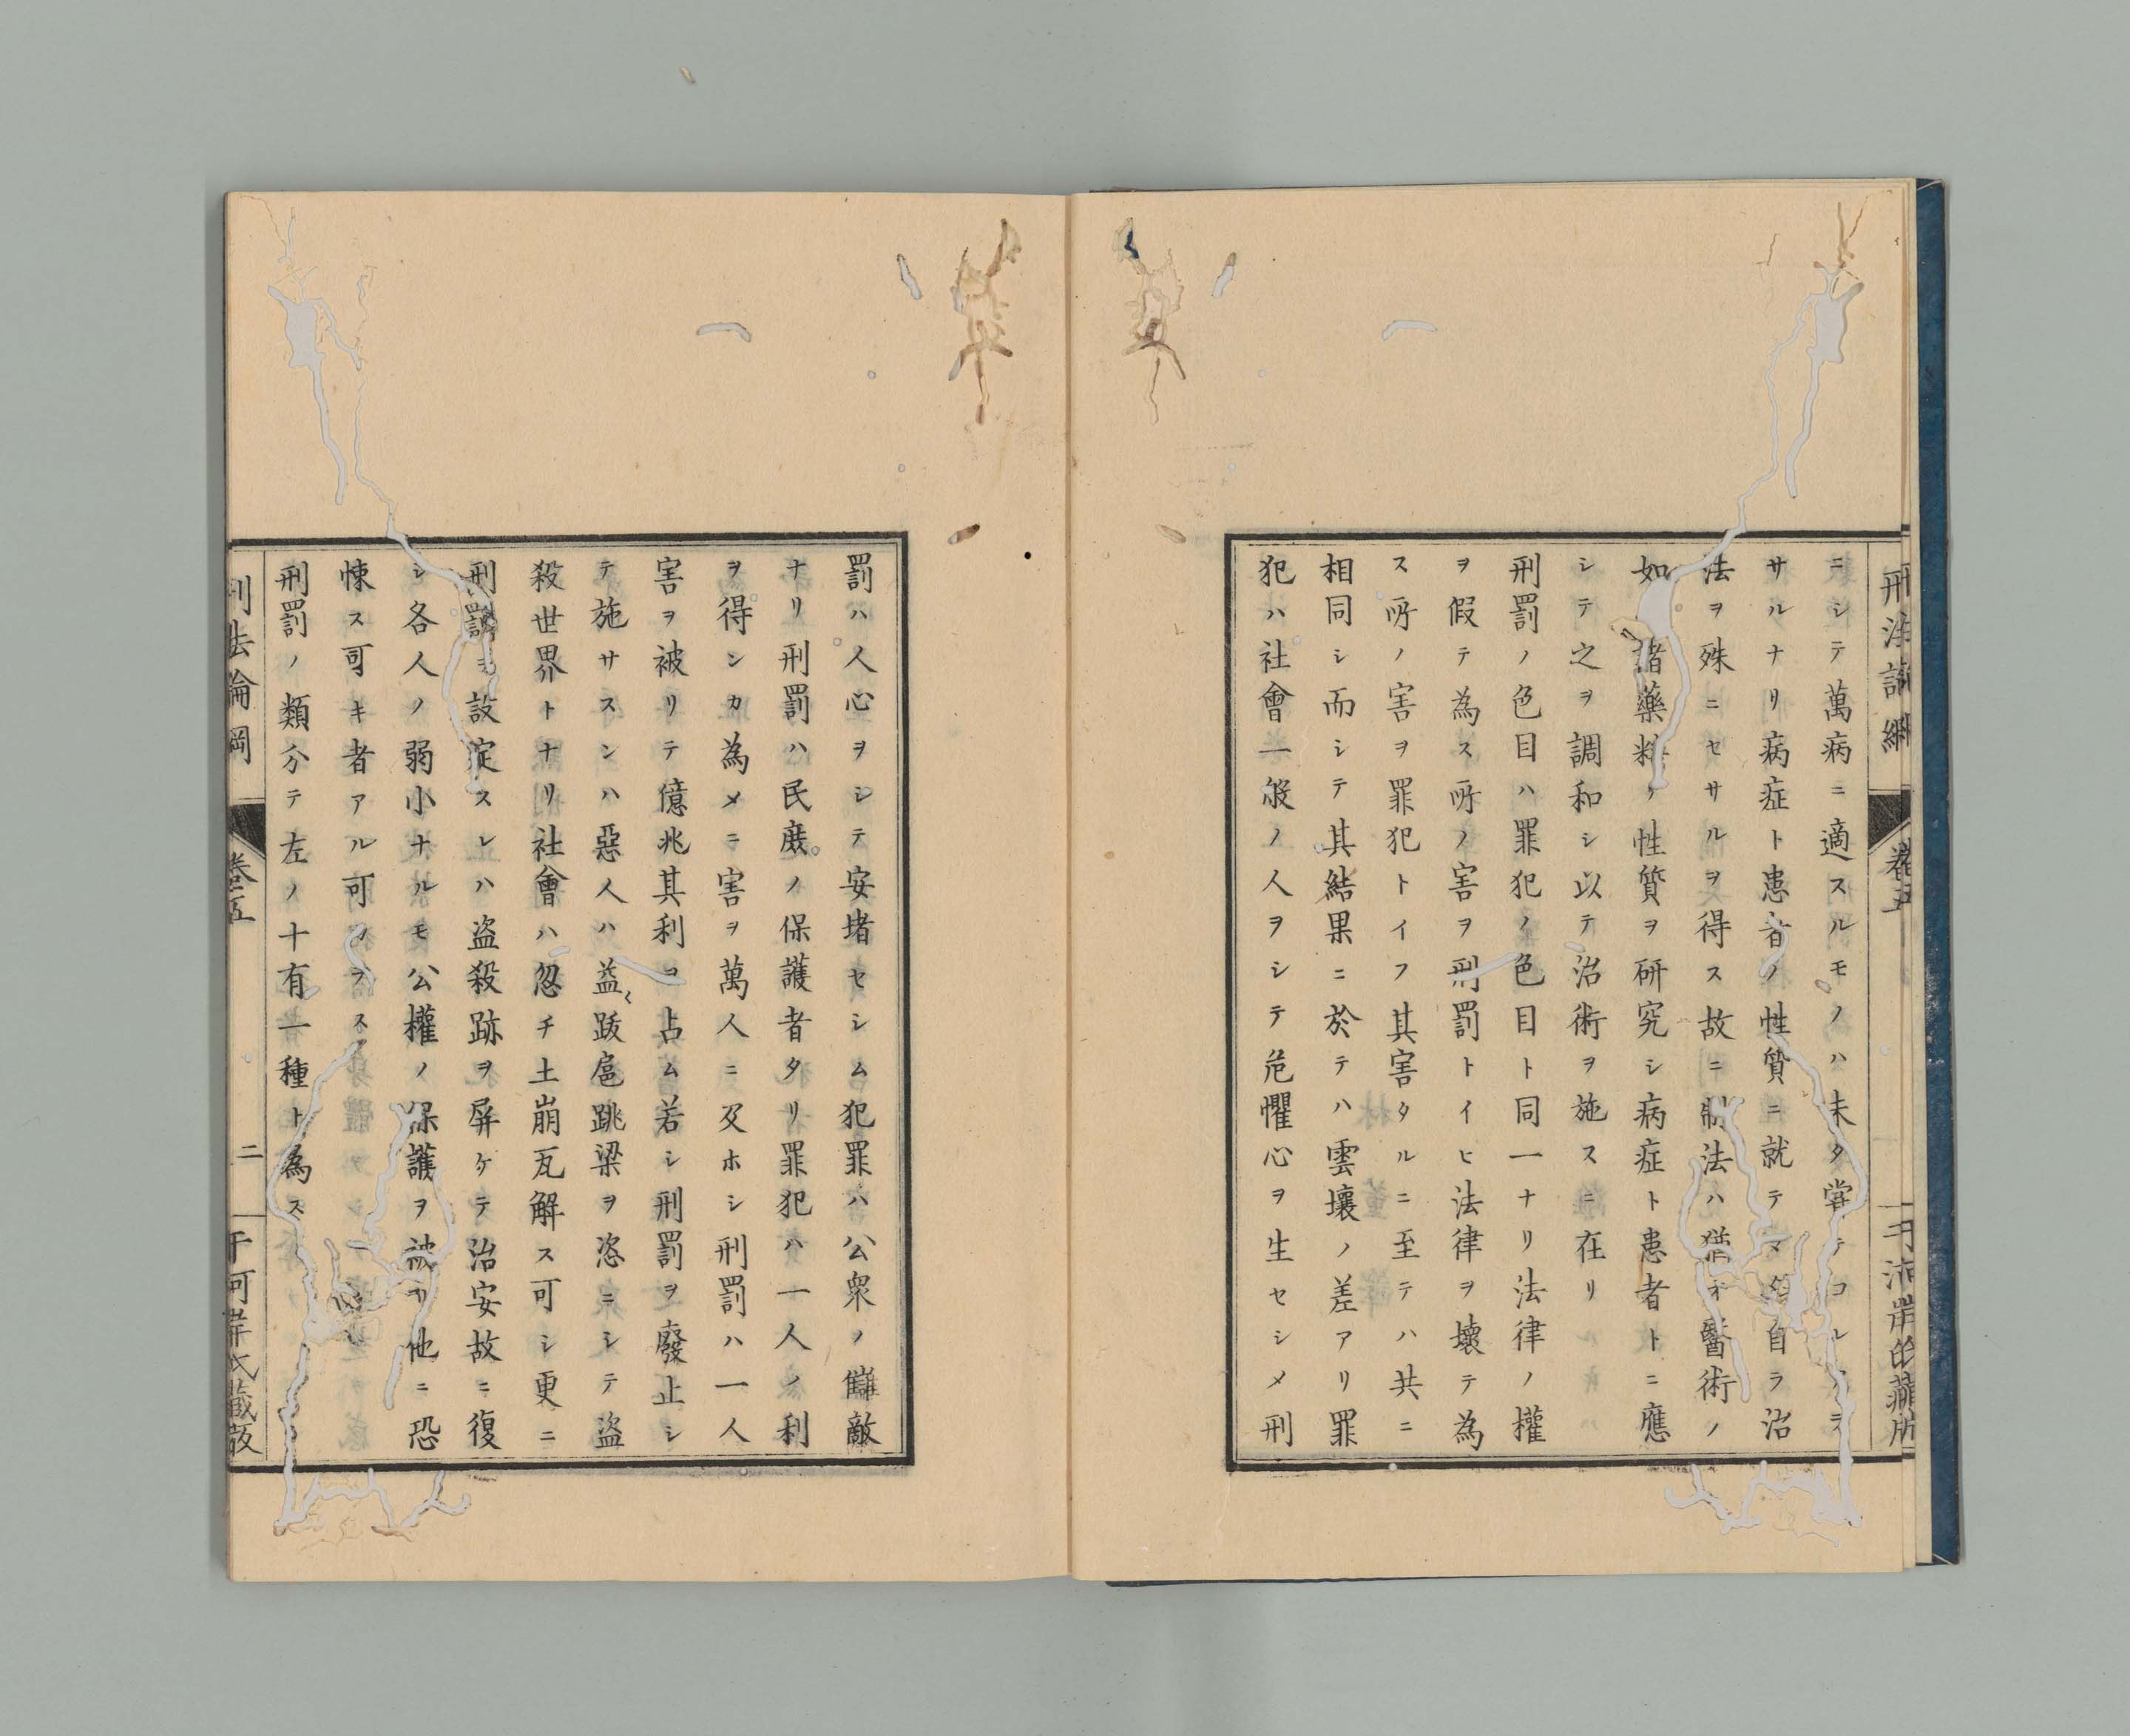 刑法論綱
卷五
ニシテ萬病ニ適スルモノハ未タ嘗テコレアラ
サルナリ病症ト患者ノ性質ニ就テマタ自ラ治
法ヲ殊ニセサルヲ得ス故ニ制法ハ猶オ醫術ノ
如諸藥料ノ性質ヲ研究シ病症ト患者トニ應
シテ之ヲ調和シ以テ治術ヲ施スニ在リ
刑罰ノ色目ハ罪犯ノ色目ト同一ナリ法律ノ權
ヲ假テ為ス所ノ害ヲ刑罰トイヒ法律ヲ壞テ為
ス所ノ害ヲ罪犯トイフ其害タルニ至テハ共ニ
相同シ而シテ其結果ニ於テハ雲壤ノ差アリ罪
犯ハ社會一般ノ人ヲシテ危懼心ヲ生セシメ刑
罰ハ人心ヲシテ安堵セシム犯罪ハ公衆ノ讎敵
ナリ刑罰ハ民庶ノ保護者タリ罪犯ハ一人ノ利
ヲ得ンカ為メニ害ヲ萬人ニ及ホシ刑罰ハ一人
害ヲ被リテ億兆其利ヲ占ム若シ刑罰ヲ廢止シ
テ施サスンハ惡人ハ益〻跋扈跳梁ヲ恣ニシテ盜
殺世界トナリ社會ハ忽チ土崩瓦解ス可シ更ニ
刑罰ヲ設定スレハ盜殺跡ヲ屏ケテ治安故ニ復
シ各人ノ弱小ナルモ公權ノ保護ヲ被リ他ニ恐
悚ス可キ者アル可カラス
刑罰ノ類分テ左ノ十有一種ト為ス
刑法論綱
卷五
二
干河岸氏藏版